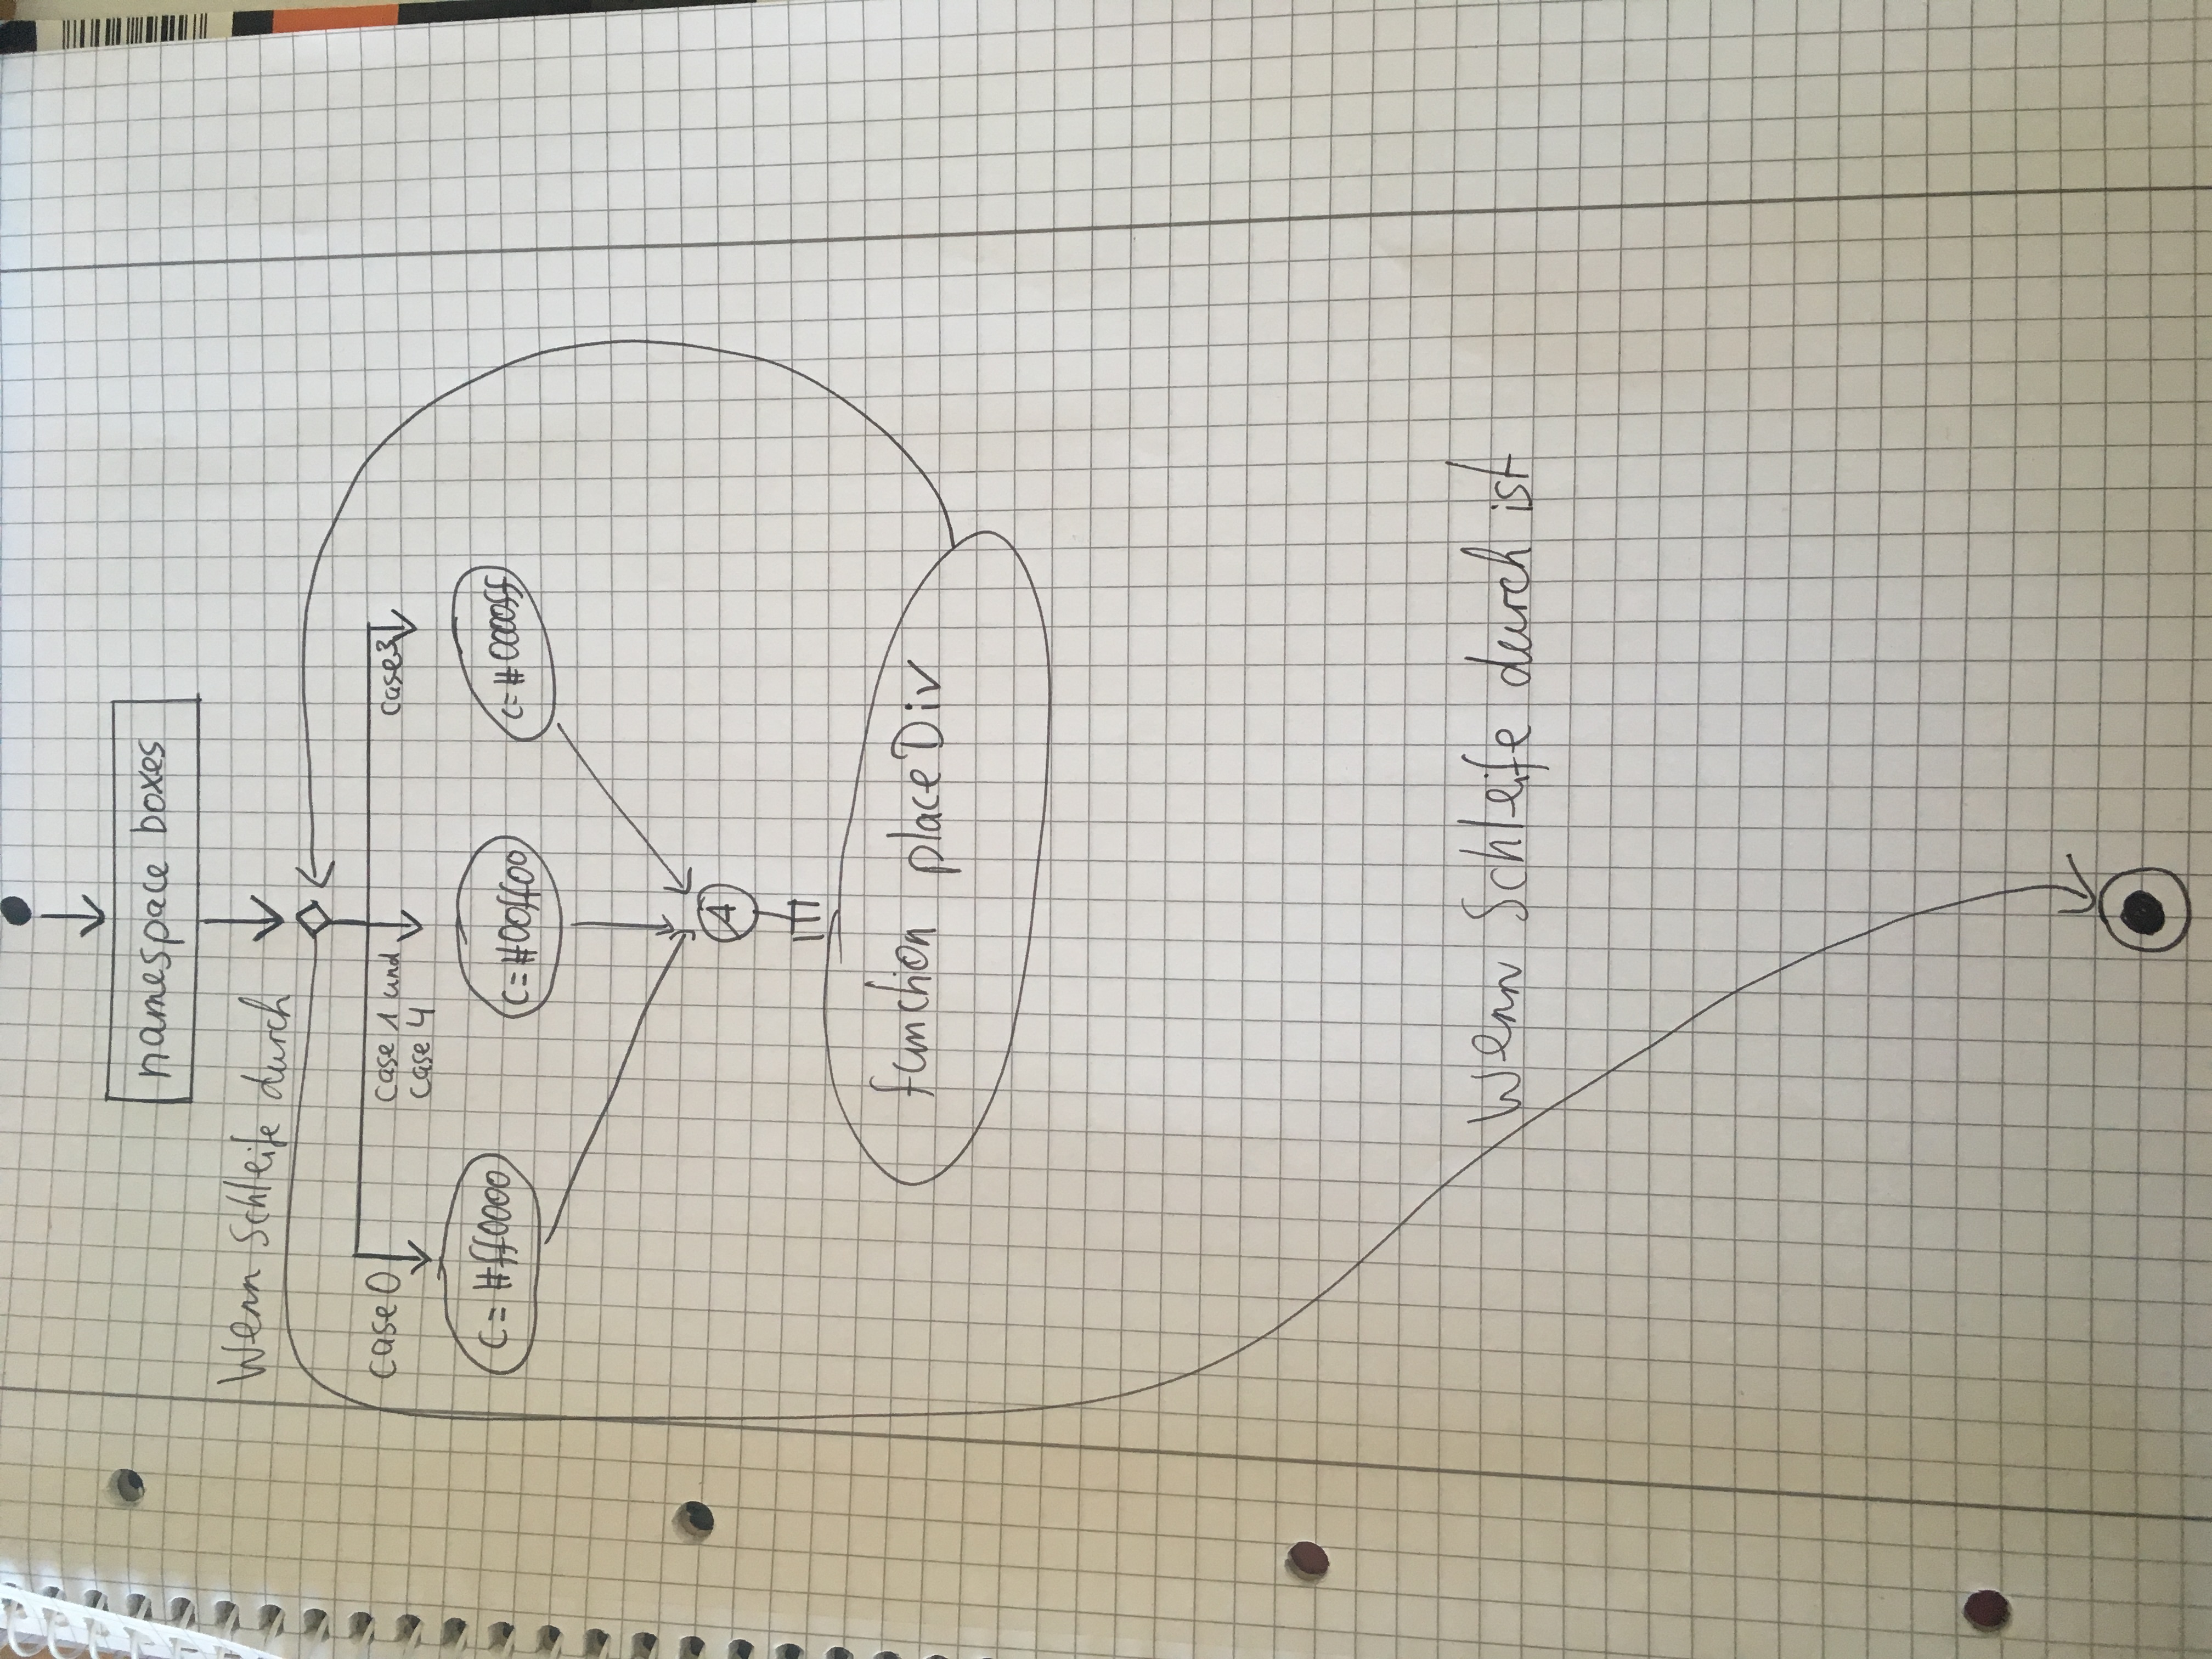 namespace boxes
Wenn Schleife durch
case 0
case 1 und
case 4
case3
c= #ff0000
c=#00ff00
c=#0000ff
A
function placeDiv
Wenn Schleife durch ist